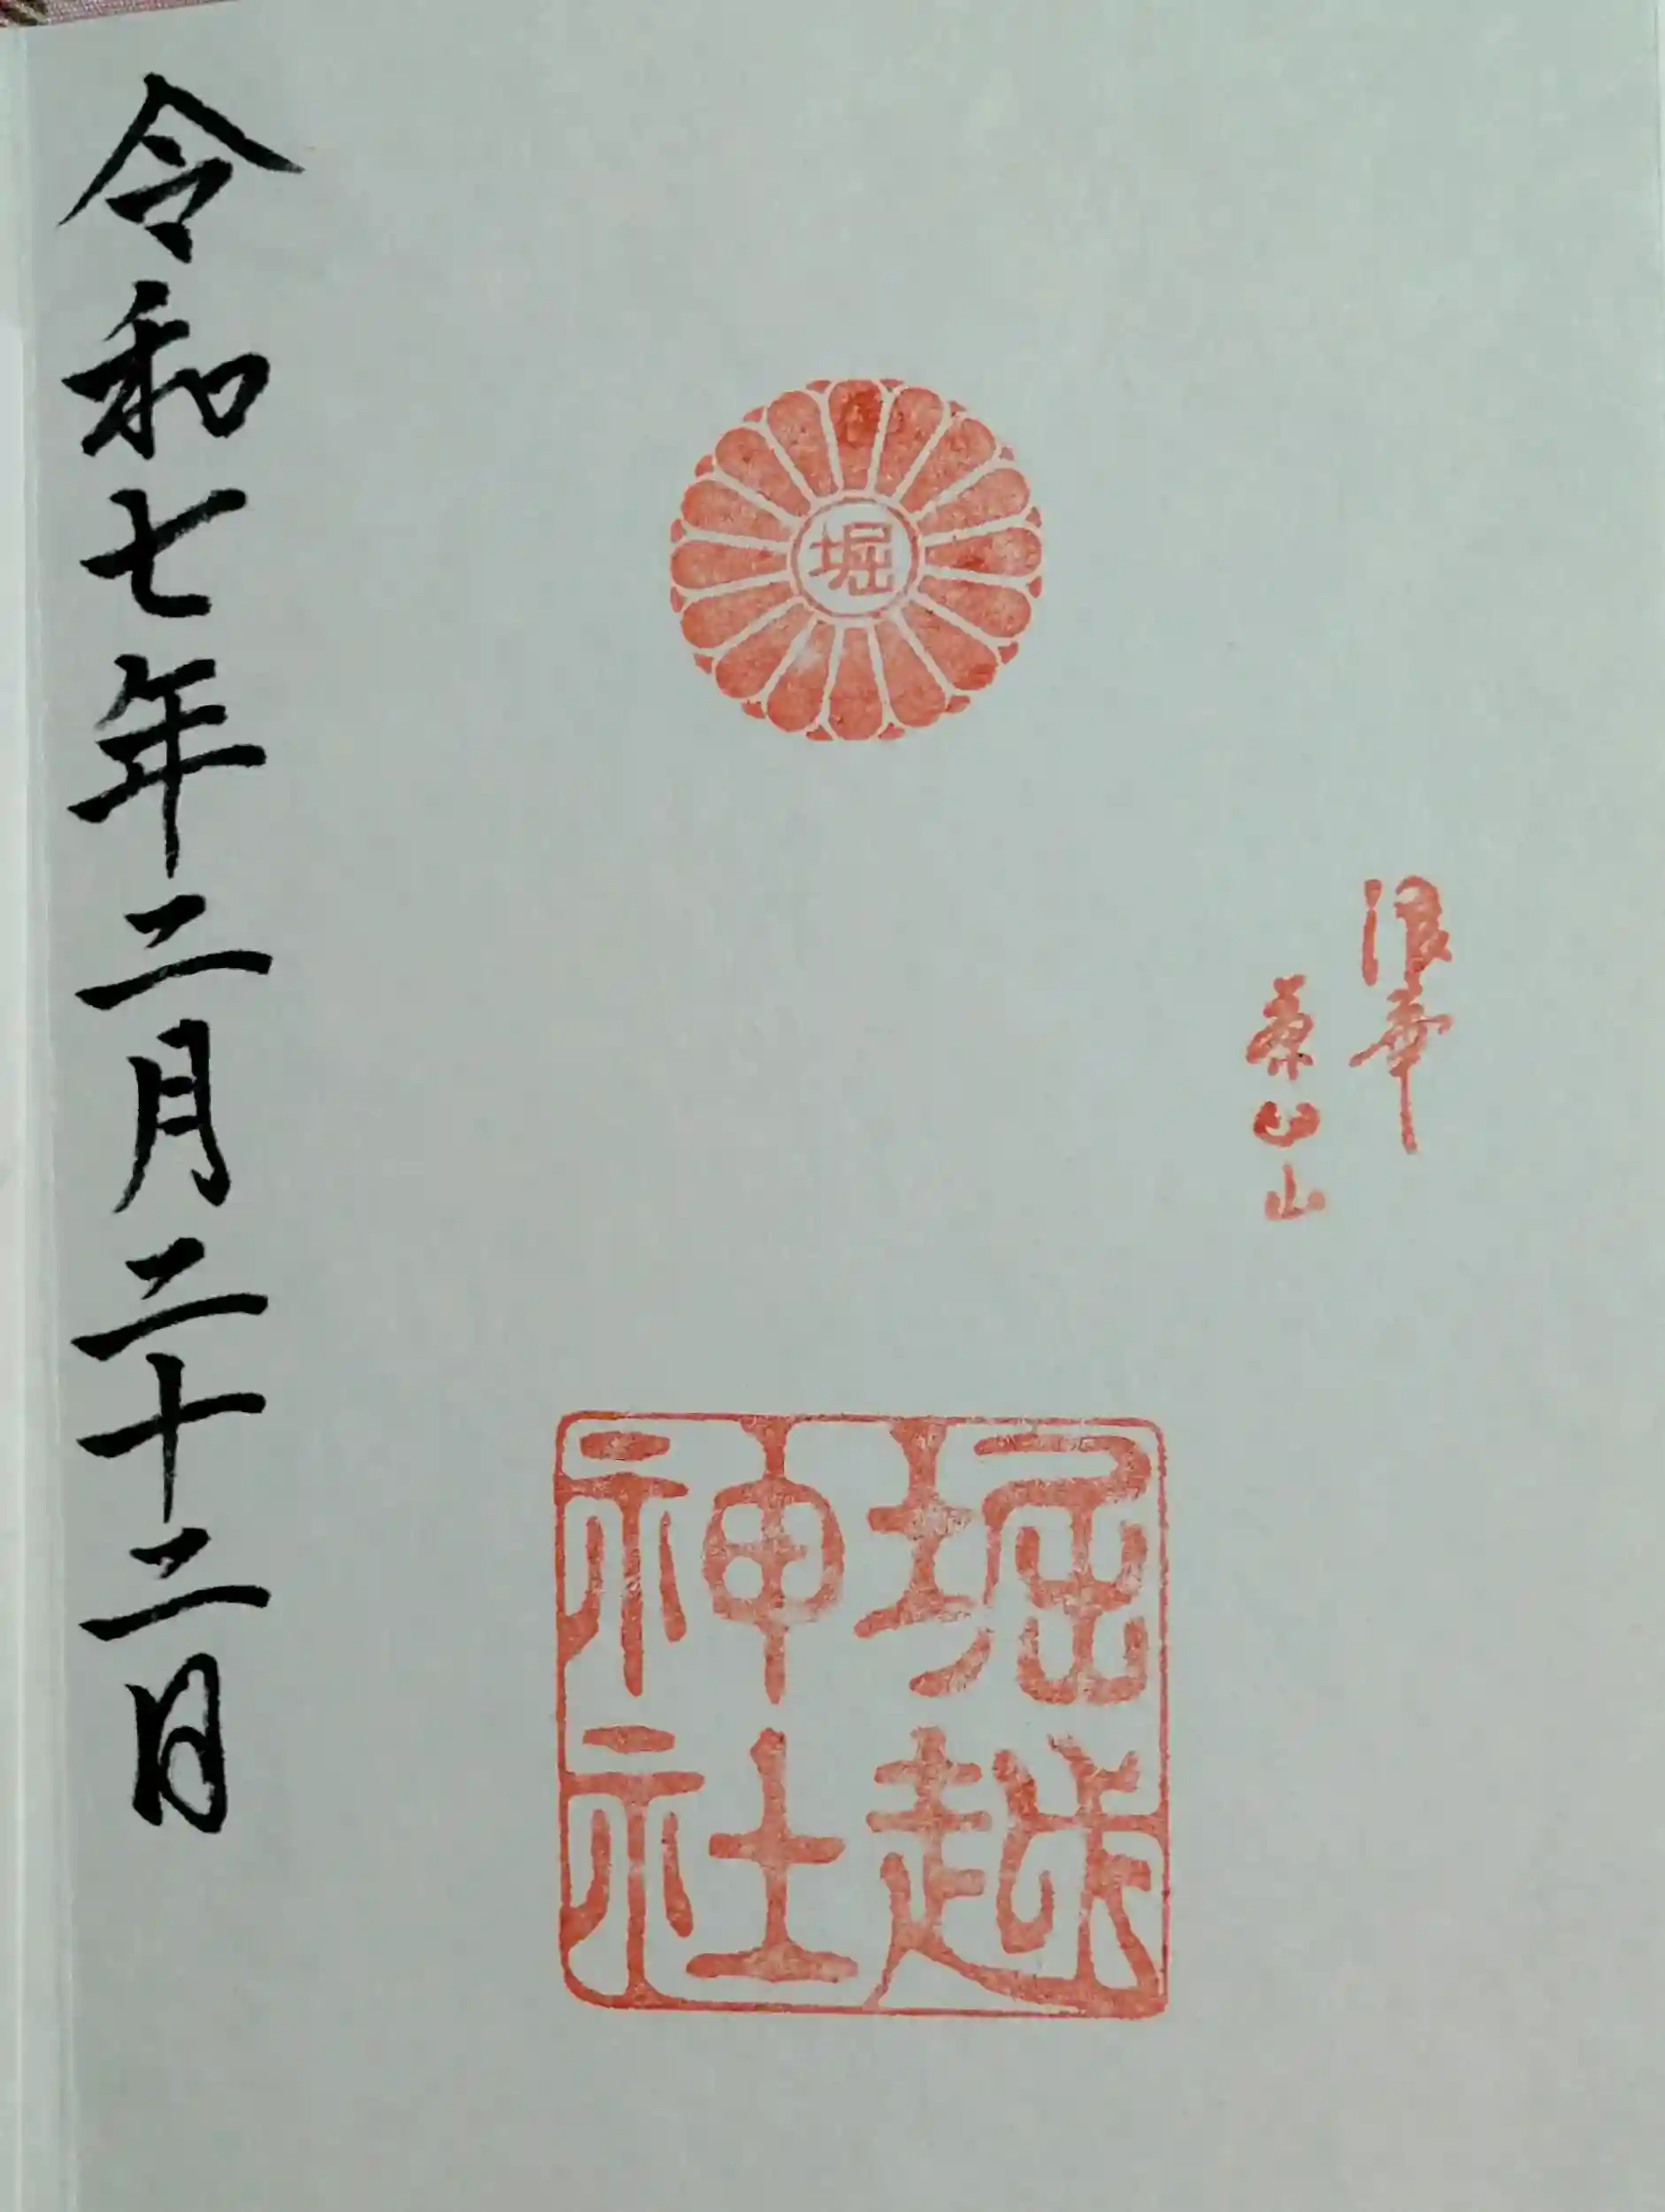 浪華
茶臼山
堀
堀越
神社
令和七年二月二十二日